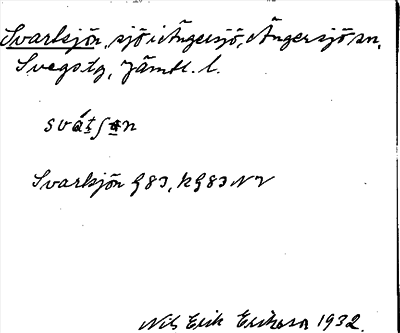 Svartsjön, sjö i Ängersjö, Ängersjö sn,
Svegs tg, Jämtl. l.
Svartsjön G83, kG83 NV
Nils Erik Erikson 1932.